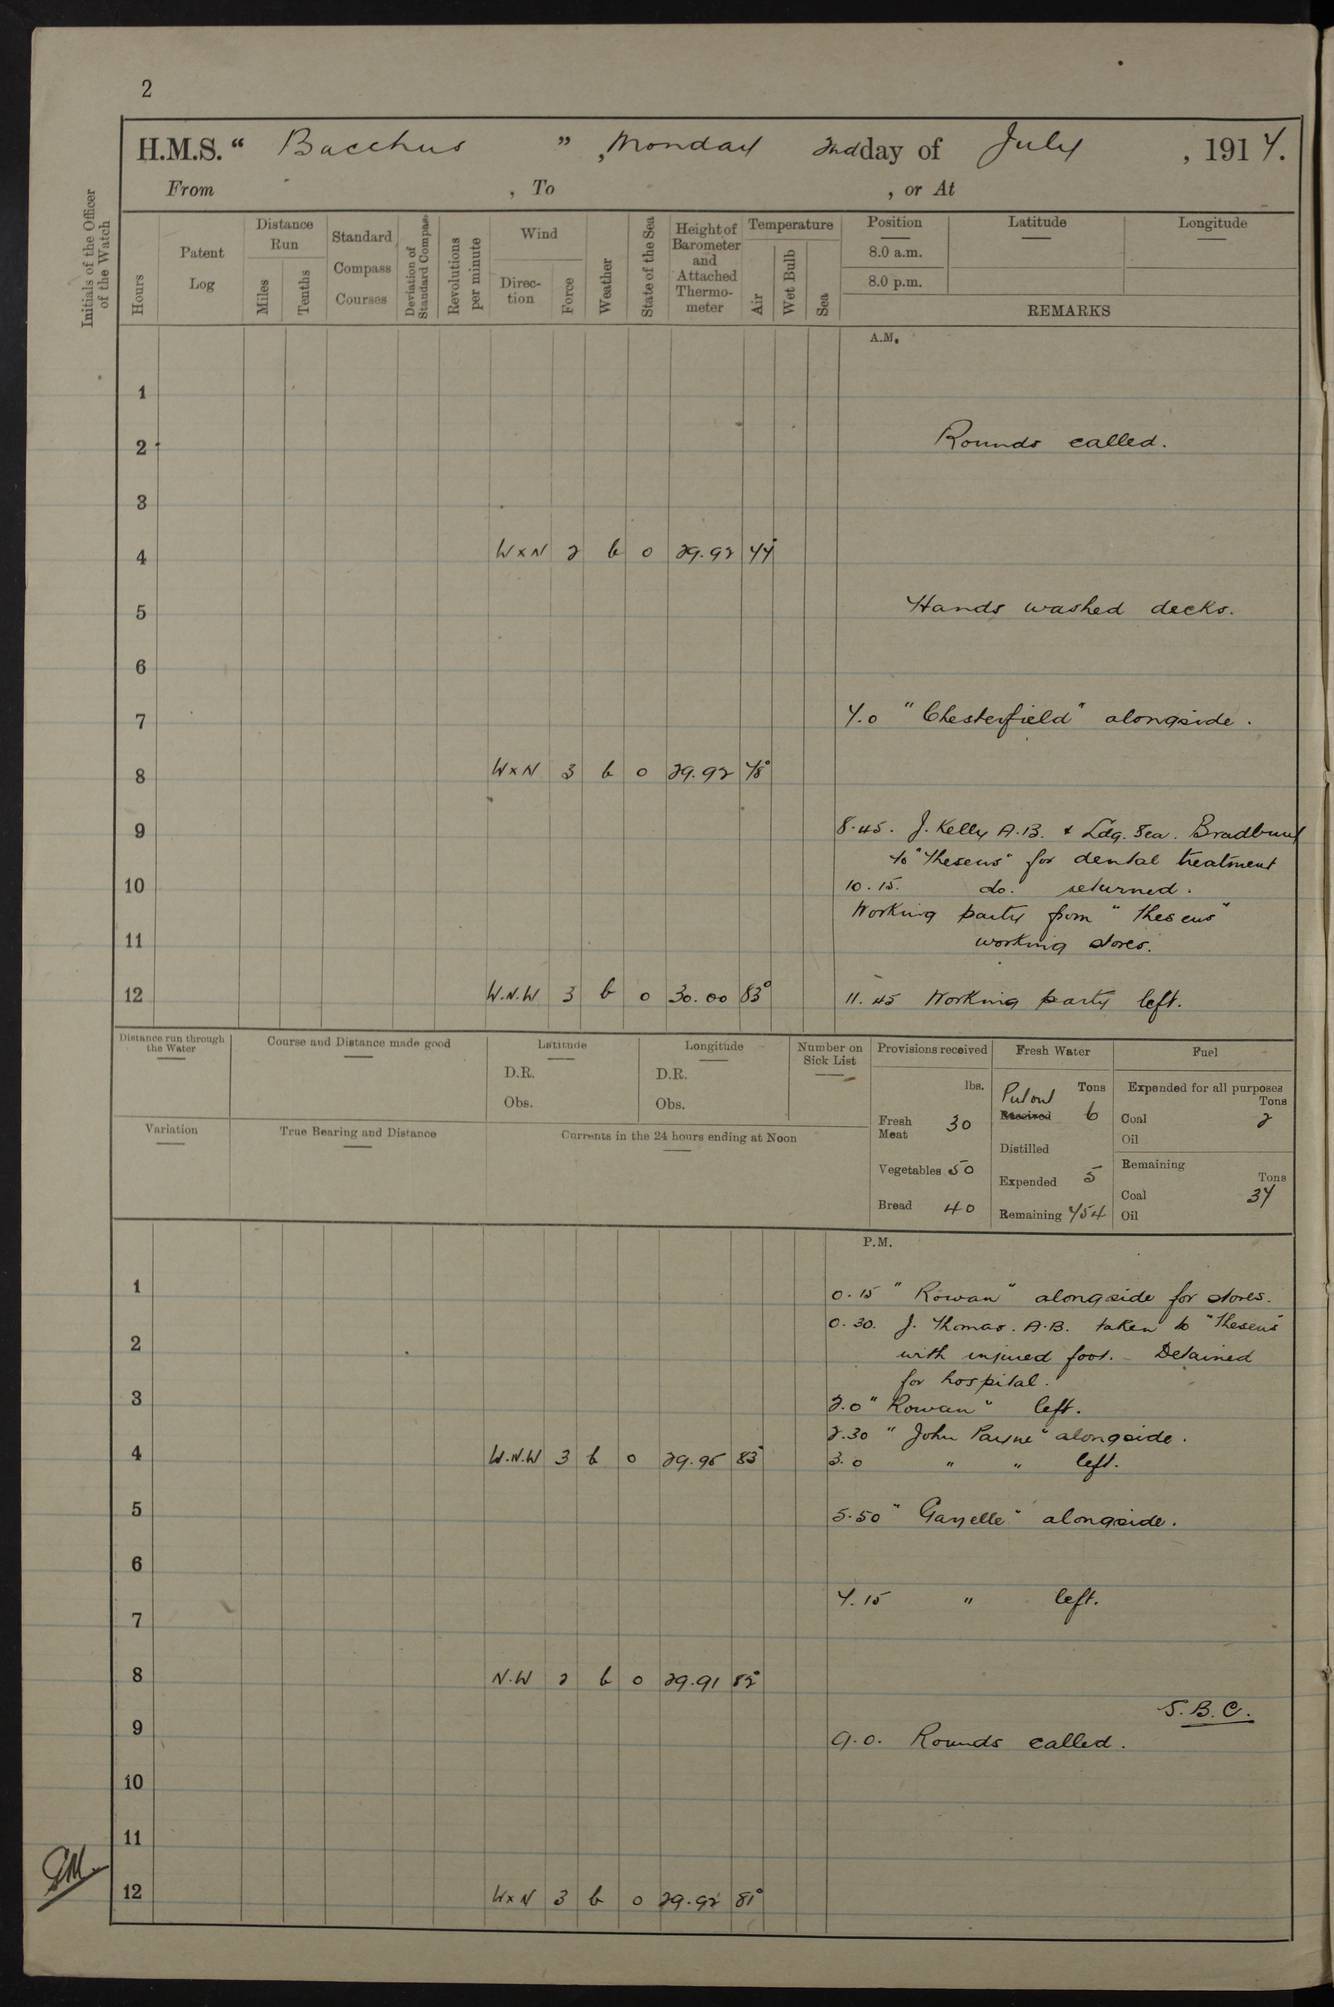 2
H.M.S. “ Bacchus ” , Monday 2nd day of July , 1917.
From , To , or At
Initials of the Officer of the Watch
Hours
Patent Log
Distance Run
Miles
Tenths
Standard Compass Courses
Deviation of Standard Compass
Revolutions per minute
Wind
Direction
Force
Weather
State of the Sea
Height of Barometer and Attached Thermometer
Temperature
Air
Wet Bulb
Sea
Position Latitude Longitude
8.0 a.m.
8.0 p.m.
REMARKS
A.M.
1
2 Rounds called.
3
4 W×N 2 b 0 29.92 77°
5 Hands washed decks.
6
7 7.0 "Chesterfield" alongside.
8 W×N 3 b 0 29.92 78°
9 8.45. J. Kelly A.B. & Ldg. Sea. Bradbury
to "Theseus" for dental treatment
10 10.15. do. returned.
Working party from "Theseus"
11 working stores.
12 W.N.W 3 b 0 30.00 83° 11.45 Working party left.
Distance run through the Water
Course and Distance made good
Latitude
D.R.
Obs.
Longitude
D.R.
Obs.
Number on Sick List
Provisions received
lbs.
Fresh Meat 30
Vegetables 50
Bread 40
Fresh Water
Tons
Put out
Received 6
Distilled
Expended 5
Remaining 754
Fuel
Expended for all purposes
Tons
Coal 2
Oil
Remaining
Tons
Coal 37
Oil
Variation
True Bearing and Distance
Currents in the 24 hours ending at Noon
P.M.
1 0.15 "Rowan" alongside for stores.
0.30. J. Thomas. A.B. taken to "Theseus"
2 with injured foot. - Detained
for hospital.
3 2.0 "Rowan" left.
2.30 "John Payne" alongside.
4 W.N.W 3 b 0 29.95 83° 3.0 " " left.
5 5.50 "Gazelle" alongside.
6
7.15 " left.
7
8 N.W 2 b 0 29.91 82°
S.B.C.
9 9.0. Rounds called.
10
11
12 W×N 3 b 0 29.92 81°